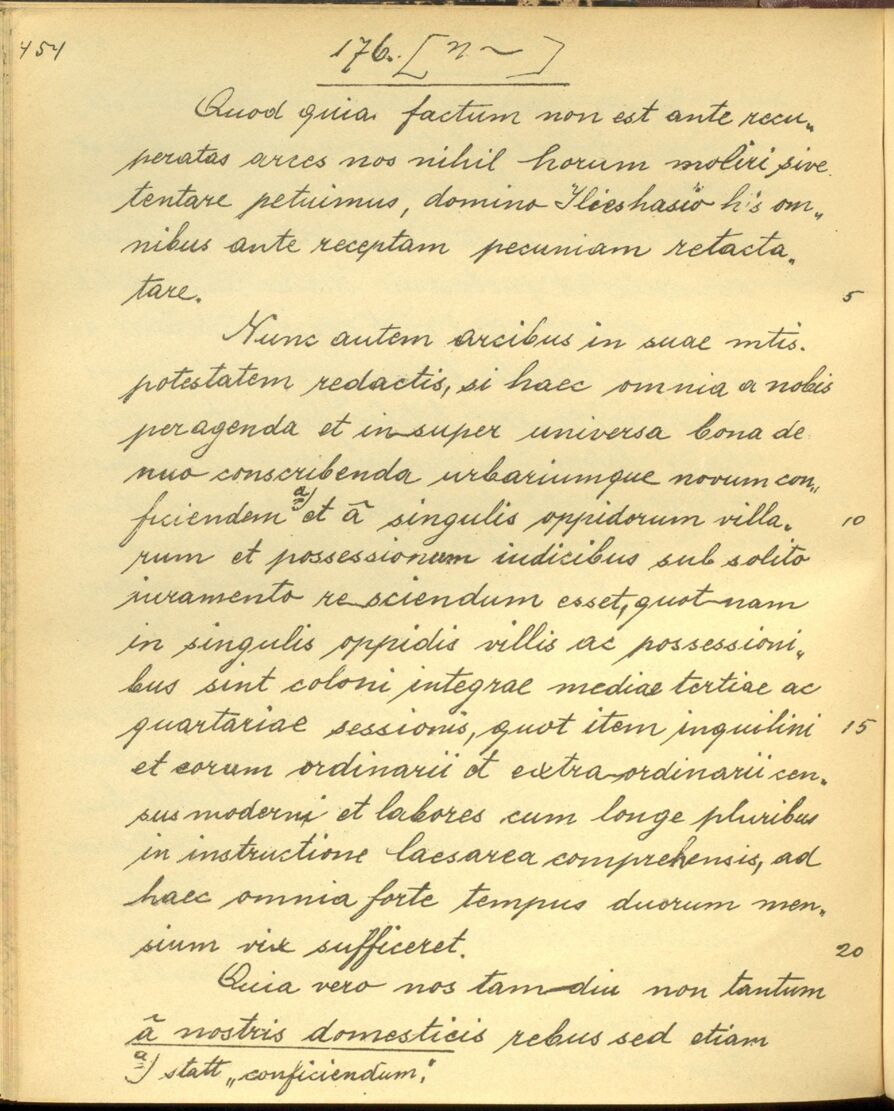 454
176. [n ~ ]
Quod quia factum non est ante recu„
peratas arces nos nihil horum moliri sive
tentare petuimus, domino Ilieshasio his om„
nibus ante receptam pecuniam retacta„
tare. 5
Nunc autem arcibus in suae mtis.
potestatem redactis, si haec omnia a nobis
peragenda et in super universa bona de
nuo conscribenda urbariumque novum con„
ficiendem a) et ā singulis oppidorum villa„ 10
rum et possessionum iudicibus sub solito
iuramento re sciendum esset, quot nam
in singulis oppidis villis ac possessioni„
bus sint coloni integrae mediae tertiae ac
quartariae sessionis, quot item inquilini 15
et eorum ordinarii et extra ordinarii cen„
sus moderni et labores cum longe pluribus
in instructione Caesarea comprehensis, ad
haec omnia forte tempus duorum men„
sium vix sufficeret. 20
Quia vero nos tam diu non tantum
ā nostris domesticis rebus sed etiam
a) statt „conficiendum“